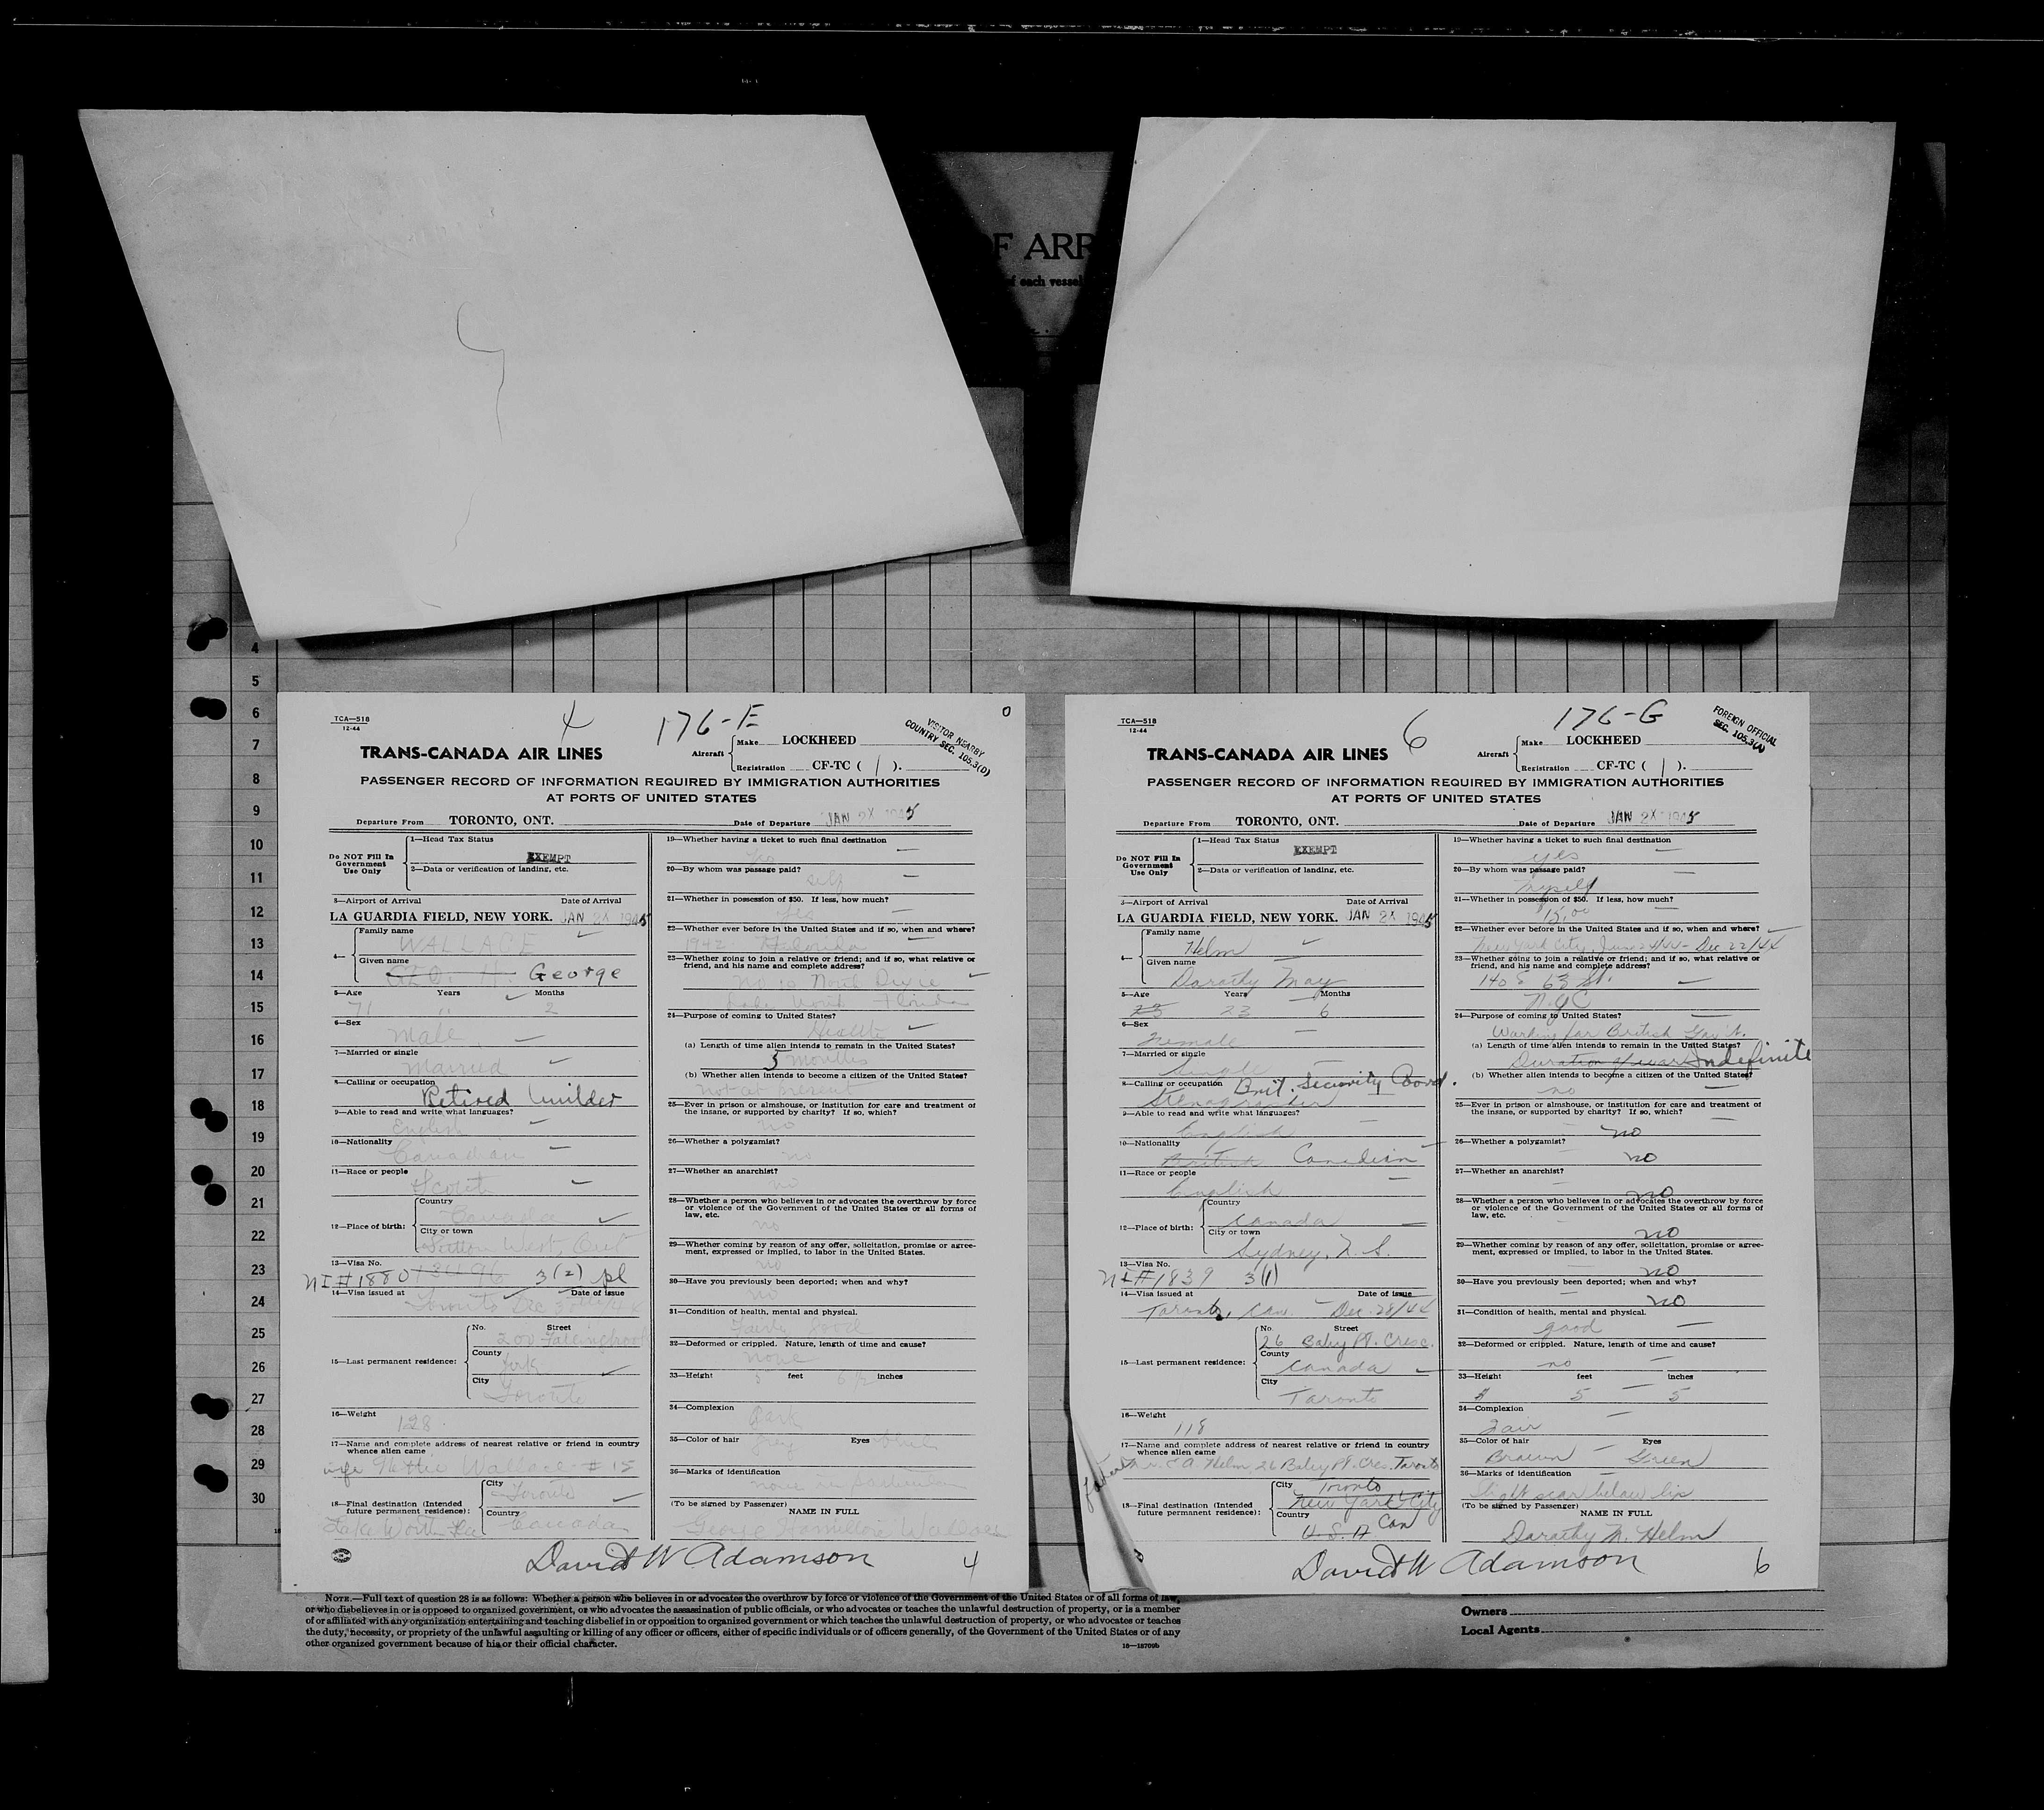 OF ARR
of each vessel
4
5
6
7
8
9
10
11
12
13
14
15
16
17
18
19
20
21
22
23
24
25
26
27
28
29
30
TCA—518
12-44
4
176-E
0
VISITOR NEARBY
COUNTRY SEC. 105.3(D)
TRANS-CANADA AIR LINES
Aircraft
Make LOCKHEED
Registration CF-TC ( 1 ).
PASSENGER RECORD OF INFORMATION REQUIRED BY IMMIGRATION AUTHORITIES
AT PORTS OF UNITED STATES
Departure From TORONTO, ONT. Date of Departure JAN 2X 1945
Do NOT Fill In
Government
Use Only
1—Head Tax Status
EXEMPT
2—Data or verification of landing, etc.
3—Airport of Arrival Date of Arrival
LA GUARDIA FIELD, NEW YORK. JAN 2X 1945
4—
Family name
WALLACE
Given name
GEO. H. George
5—Age Years Months
71 " 2
6—Sex
Male
7—Married or single
Married
8—Calling or occupation
Retired builder
9—Able to read and write what languages?
English
10—Nationality
Canadian
11—Race or people
Scotch
12—Place of birth:
Country
Canada
City or town
Sutton West, Ont
13—Visa No.
NI # 1880 3(2) pl
14—Visa issued at Date of issue
Toronto Dec 30th/44
15—Last permanent residence:
No. Street
200 Fallingbrook
County
York
City
Toronto
16—Weight
128
17—Name and complete address of nearest relative or friend in country
whence alien came
wife Nettie Wallace - # 15
18—Final destination (Intended
future permanent residence):
City
Toronto
Country
Canada
Lake Worth Fla
19—Whether having a ticket to such final destination
Yes
20—By whom was passage paid?
self
21—Whether in possession of $50. If less, how much?
Yes
22—Whether ever before in the United States and if so, when and where?
1942 Florida
23—Whether going to join a relative or friend; and if so, what relative or
friend, and his name and complete address?
Lake Worth Florida
24—Purpose of coming to United States?
Health
(a) Length of time alien intends to remain in the United States?
5 months
(b) Whether alien intends to become a citizen of the United States?
not at present
25—Ever in prison or almshouse, or institution for care and treatment of
the insane, or supported by charity? If so, which?
no
26—Whether a polygamist?
no
27—Whether an anarchist?
no
28—Whether a person who believes in or advocates the overthrow by force
or violence of the Government of the United States or all forms of
law, etc.
no
29—Whether coming by reason of any offer, solicitation, promise or agree-
ment, expressed or implied, to labor in the United States.
no
30—Have you previously been deported; when and why?
no
31—Condition of health, mental and physical.
Fairly good
32—Deformed or crippled. Nature, length of time and cause?
none
33—Height 5 feet 6 1/2 inches
34—Complexion
Dark
35—Color of hair Eyes
Grey
36—Marks of identification
none in particular
(To be signed by Passenger) NAME IN FULL
George Hamilton Wallace
David W Adamson
4
TCA—518
12-44
6
176-G
FOREIGN OFFICIAL
SEC. 105.3(A)
TRANS-CANADA AIR LINES
Aircraft
Make LOCKHEED
Registration CF-TC ( 1 ).
PASSENGER RECORD OF INFORMATION REQUIRED BY IMMIGRATION AUTHORITIES
AT PORTS OF UNITED STATES
Departure From TORONTO, ONT. Date of Departure JAN 2X 1945
Do NOT Fill In
Government
Use Only
1—Head Tax Status
EXEMPT
2—Data or verification of landing, etc.
3—Airport of Arrival Date of Arrival
LA GUARDIA FIELD, NEW YORK. JAN 2X 1945
4—
Family name
Helm
Given name
Dorothy May
5—Age Years Months
23 23 6
6—Sex
Female
7—Married or single
Single
8—Calling or occupation Brit. Security Coord.
Stenographer
9—Able to read and write what languages?
English
10—Nationality
British Canadian
11—Race or people
English
12—Place of birth:
Country
Canada
City or town
Sydney, N.S.
13—Visa No.
NI # 1839 3(1)
14—Visa issued at Date of issue
Toronto, Can. Dec. 28/44
15—Last permanent residence:
No. Street
26 Balsy Pt. Cresc.
County
Canada
City
Toronto
16—Weight
118
17—Name and complete address of nearest relative or friend in country
whence alien came
father Mr. E. A. Helm, 26 Balsy Pt. Cres. Toronto
18—Final destination (Intended
future permanent residence):
City Toronto
New York City
Country
U.S.A Can
19—Whether having a ticket to such final destination
yes
20—By whom was passage paid?
Myself
21—Whether in possession of $50. If less, how much?
$15.00
22—Whether ever before in the United States and if so, when and where?
New York City, June 24/44 - Dec 22/44
23—Whether going to join a relative or friend; and if so, what relative or
friend, and his name and complete address?
140 E 63 St.
N.Y.C
24—Purpose of coming to United States?
Working for British Gov't.
(a) Length of time alien intends to remain in the United States?
Duration of war Indefinite
(b) Whether alien intends to become a citizen of the United States?
no
25—Ever in prison or almshouse, or institution for care and treatment of
the insane, or supported by charity? If so, which?
no
26—Whether a polygamist?
no
27—Whether an anarchist?
no
28—Whether a person who believes in or advocates the overthrow by force
or violence of the Government of the United States or all forms of
law, etc.
no
29—Whether coming by reason of any offer, solicitation, promise or agree-
ment, expressed or implied, to labor in the United States.
no
30—Have you previously been deported; when and why?
no
31—Condition of health, mental and physical.
good
32—Deformed or crippled. Nature, length of time and cause?
no
33—Height feet inches
5 5
34—Complexion
Fair
35—Color of hair Eyes
Brown Green
36—Marks of identification
Slight scar below lip
(To be signed by Passenger) NAME IN FULL
Dorothy M. Helm
David W Adamson
6
NOTE.—Full text of question 28 is as follows: Whether a person who believes in or advocates the overthrow by force or violence of the Government of the United States or of all forms of law,
or who disbelieves in or is opposed to organized government, or who advocates the assassination of public officials, or who advocates or teaches the unlawful destruction of property, or is a member
of or affiliated with any organization entertaining and teaching disbelief in or opposition to organized government or which teaches the unlawful destruction of property, or who advocates or teaches
the duty, necessity, or propriety of the unlawful assaulting or killing of any officer or officers, either of specific individuals or of officers generally, of the Government of the United States or of any
other organized government because of his or their official character.
16—18709b
Owners
Local Agents